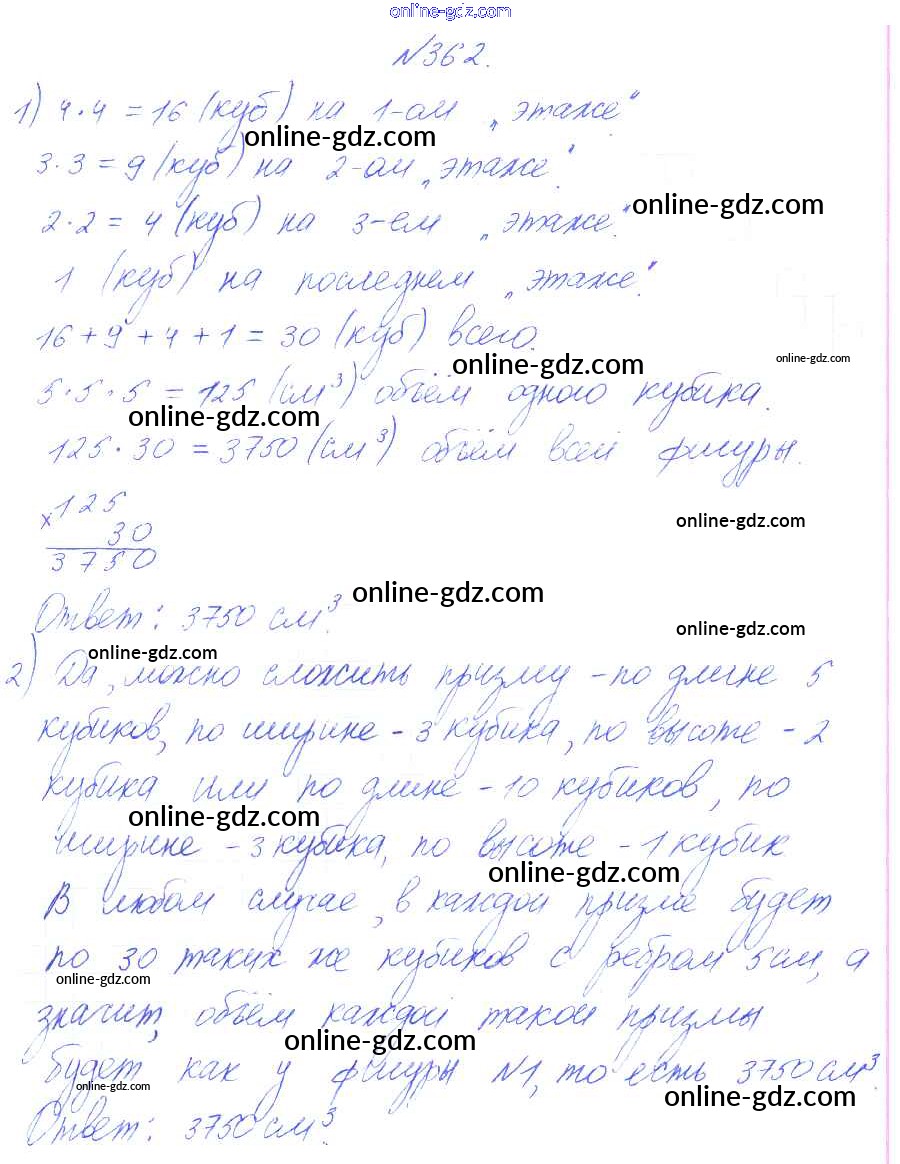 online-gdz.com
№362.
1) 4·4 = 16 (куб) на 1-ом „этаже"
online-gdz.com
3·3 = 9 (куб) на 2-ом „этаже".
online-gdz.com
2·2 = 4 (куб) на 3-ем „этаже".
1 (куб) на последнем „этаже".
16 + 9 + 4 + 1 = 30 (куб) всего.
online-gdz.com
online-gdz.com
5·5·5 = 125 (см³) объём одного кубика.
online-gdz.com
125·30 = 3750 (см³) объём всей фигуры.
×125
online-gdz.com
30
3750
online-gdz.com
Ответ: 3750 см³.
online-gdz.com
online-gdz.com
2) Да, можно сложить призму – по длине 5
кубиков, по ширине – 3 кубика, по высоте – 2
кубика или по длине – 10 кубиков, по
online-gdz.com
ширине – 3 кубика, по высоте – 1 кубик
online-gdz.com
В любом случае, в каждой призме будет
по 30 таких же кубиков с ребром 5 см, а
online-gdz.com
значит, объём каждой такой призмы
online-gdz.com
будет как у фигуры №1, то есть 3750 см³.
online-gdz.com
online-gdz.com
Ответ: 3750 см³.